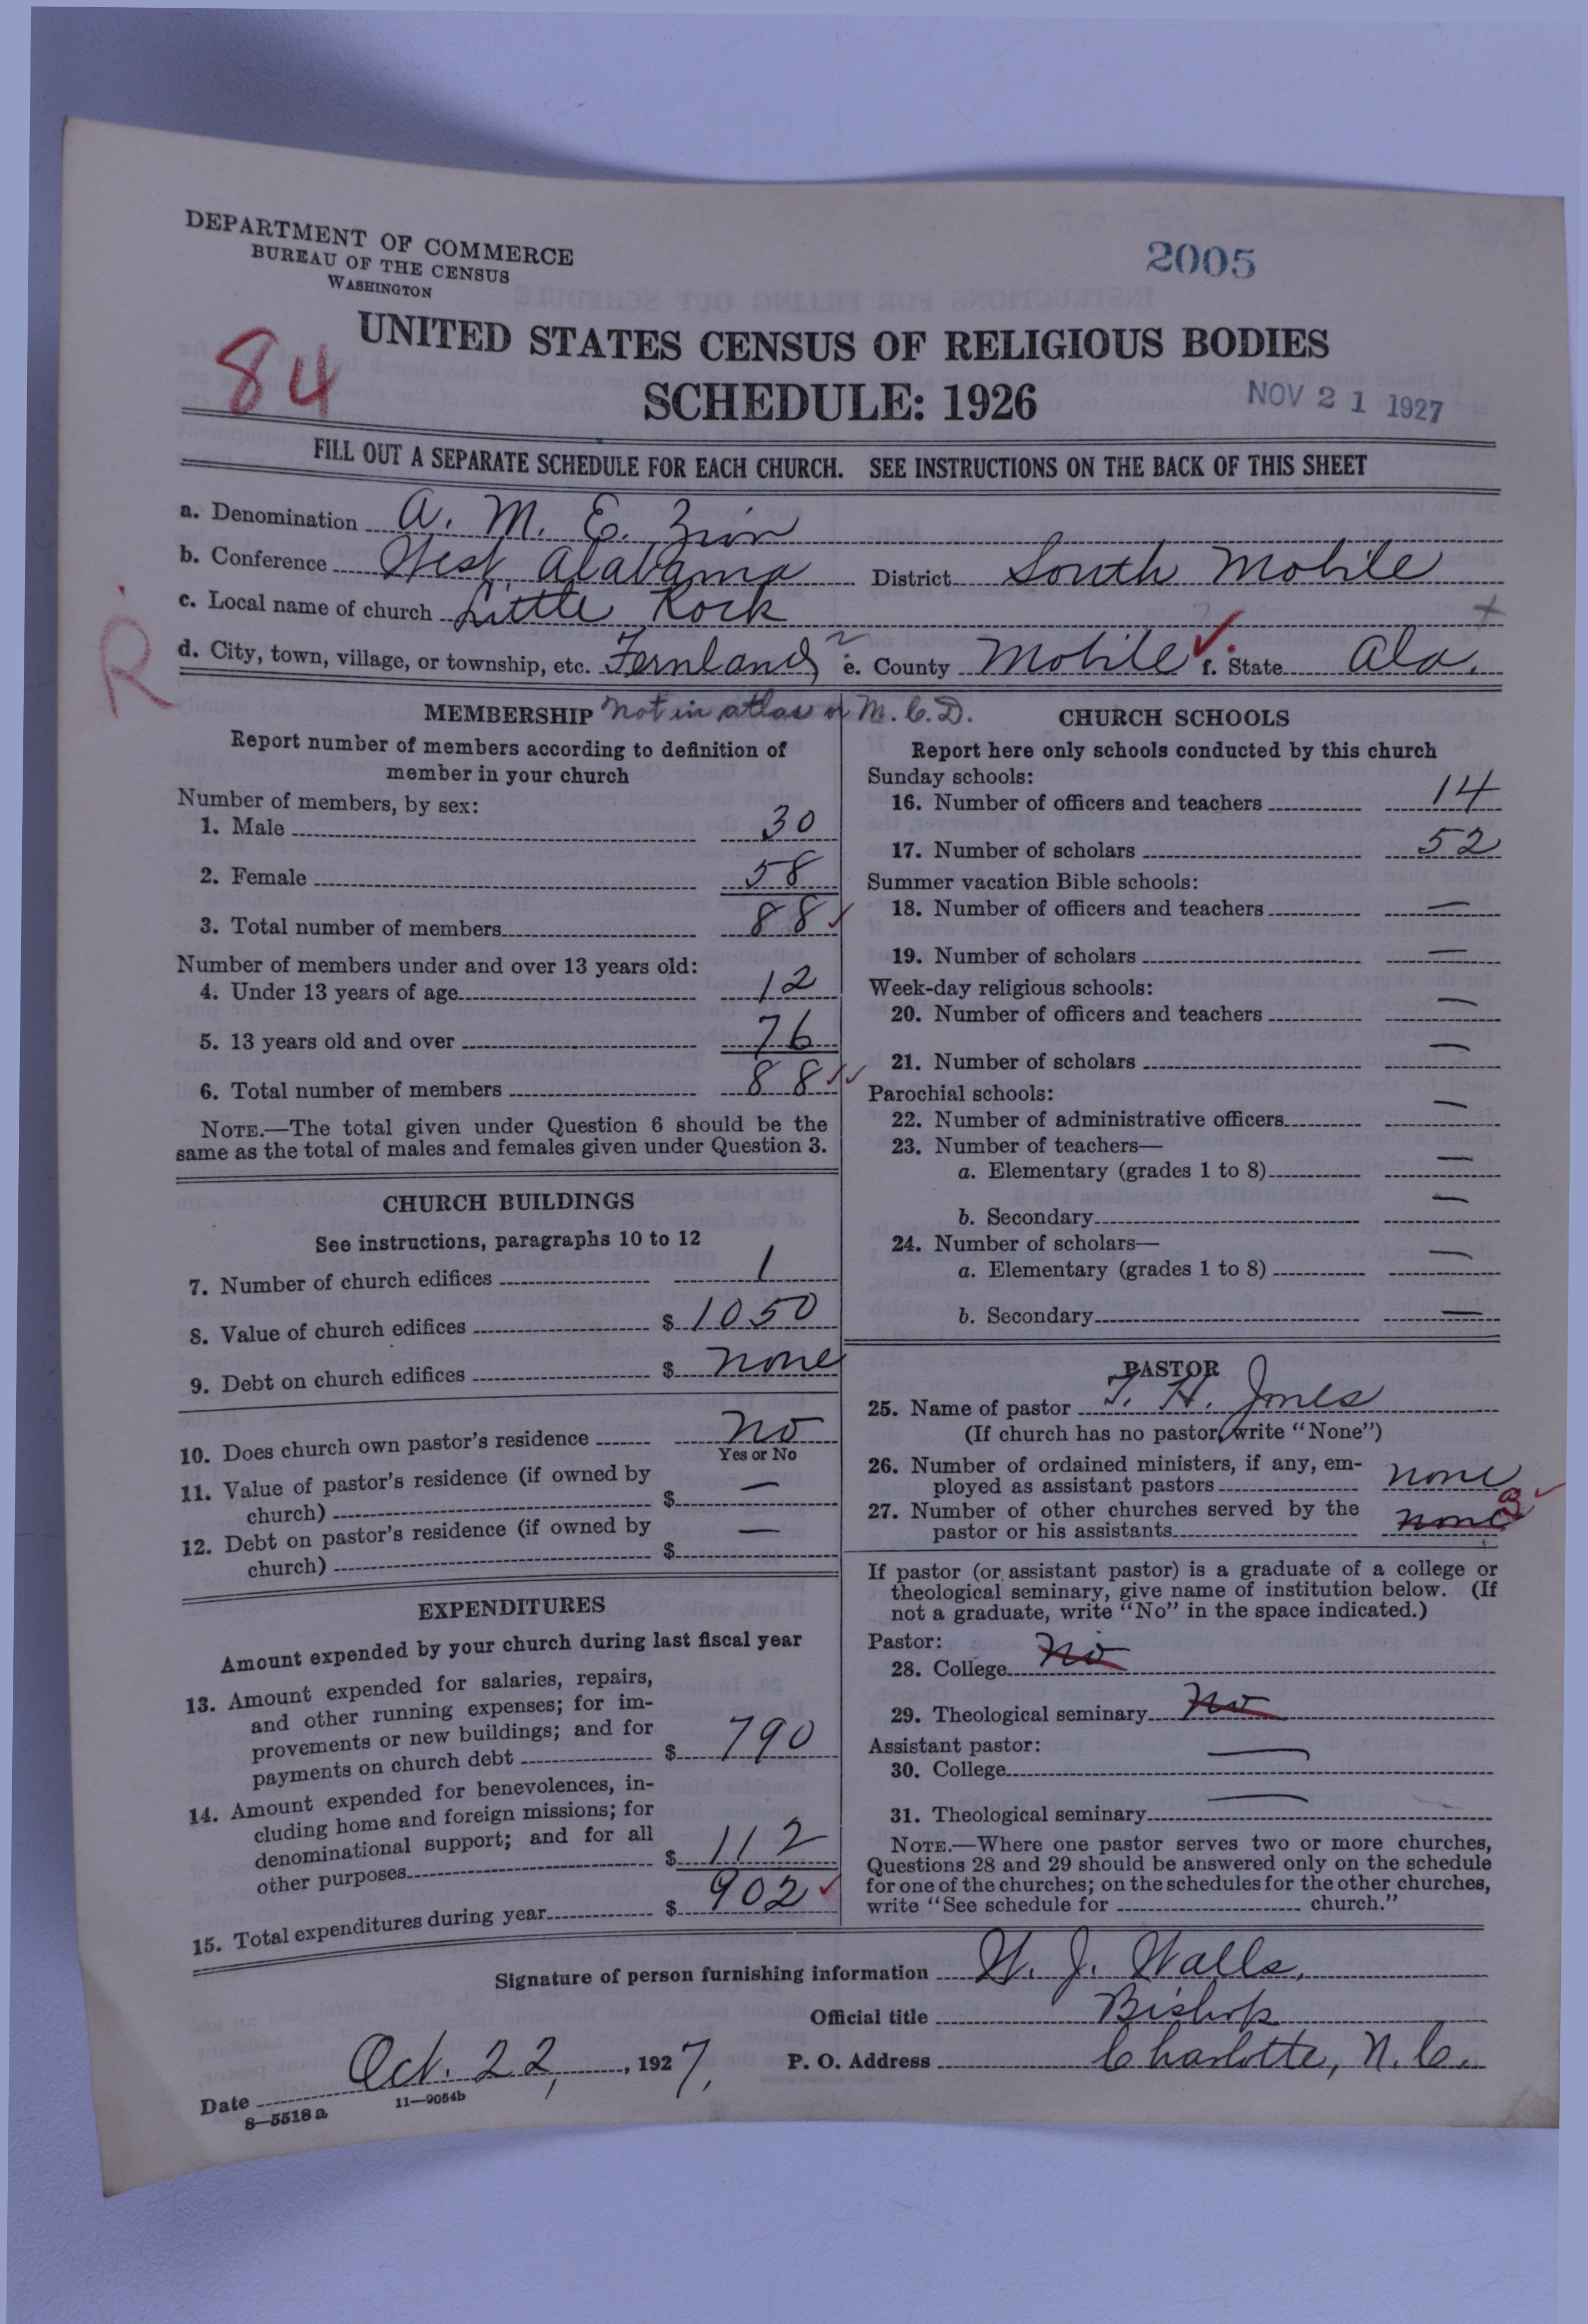 DEPARTMENT OF COMMERCE
BUREAU OF THE CENSUS
WASHINGTON
2005
84
UNITED STATES CENSUS OF RELIGIOUS BODIES
SCHEDULE: 1926
NOV 21 1927
FILL OUT A SEPARATE SCHEDULE FOR EACH CHURCH. SEE INSTRUCTIONS ON THE BACK OF THIS SHEET
a. Denomination A. M. E. Zion
b. Conference West Alabama District South Mobile
c. Local name of church Little Rock
R
d. City, town, village, or township, etc. Fernland e. County Mobile f. State Ala.
MEMBERSHIP Not in atlas or M. C. D.
Report number of members according to definition of
member in your church
Number of members, by sex:
1. Male 30
2. Female 58
3. Total number of members 88
Number of members under and over 13 years old:
4. Under 13 years of age 12
5. 13 years old and over 76
6. Total number of members 88
NOTE.—The total given under Question 6 should be the
same as the total of males and females given under Question 3.
CHURCH BUILDINGS
See instructions, paragraphs 10 to 12
7. Number of church edifices 1
8. Value of church edifices $ 1050
9. Debt on church edifices $ none
10. Does church own pastor's residence No
Yes or No
11. Value of pastor's residence (if owned by
church) $ —
12. Debt on pastor's residence (if owned by
church) $ —
EXPENDITURES
Amount expended by your church during last fiscal year
13. Amount expended for salaries, repairs,
and other running expenses; for im-
provements or new buildings; and for
payments on church debt $ 790
14. Amount expended for benevolences, in-
cluding home and foreign missions; for
denominational support; and for all
other purposes $ 112
15. Total expenditures during year $ 902
CHURCH SCHOOLS
Report here only schools conducted by this church
Sunday schools:
16. Number of officers and teachers 14
17. Number of scholars 52
Summer vacation Bible schools:
18. Number of officers and teachers —
19. Number of scholars —
Week-day religious schools:
20. Number of officers and teachers —
21. Number of scholars —
Parochial schools:
22. Number of administrative officers —
23. Number of teachers—
a. Elementary (grades 1 to 8) —
b. Secondary —
24. Number of scholars—
a. Elementary (grades 1 to 8) —
b. Secondary —
PASTOR
25. Name of pastor T. H. Jones
(If church has no pastor, write "None")
26. Number of ordained ministers, if any, em-
ployed as assistant pastors none
27. Number of other churches served by the
pastor or his assistants none
If pastor (or assistant pastor) is a graduate of a college or
theological seminary, give name of institution below. (If
not a graduate, write "No" in the space indicated.)
Pastor:
28. College No
29. Theological seminary No
Assistant pastor:
30. College —
31. Theological seminary —
NOTE.—Where one pastor serves two or more churches,
Questions 28 and 29 should be answered only on the schedule
for one of the churches; on the schedules for the other churches,
write "See schedule for church."
Signature of person furnishing information W. J. Walls,
Official title Bishop
Date Oct. 22, 1927, P. O. Address Charlotte, N. C.
8—5518 a 11—9054b